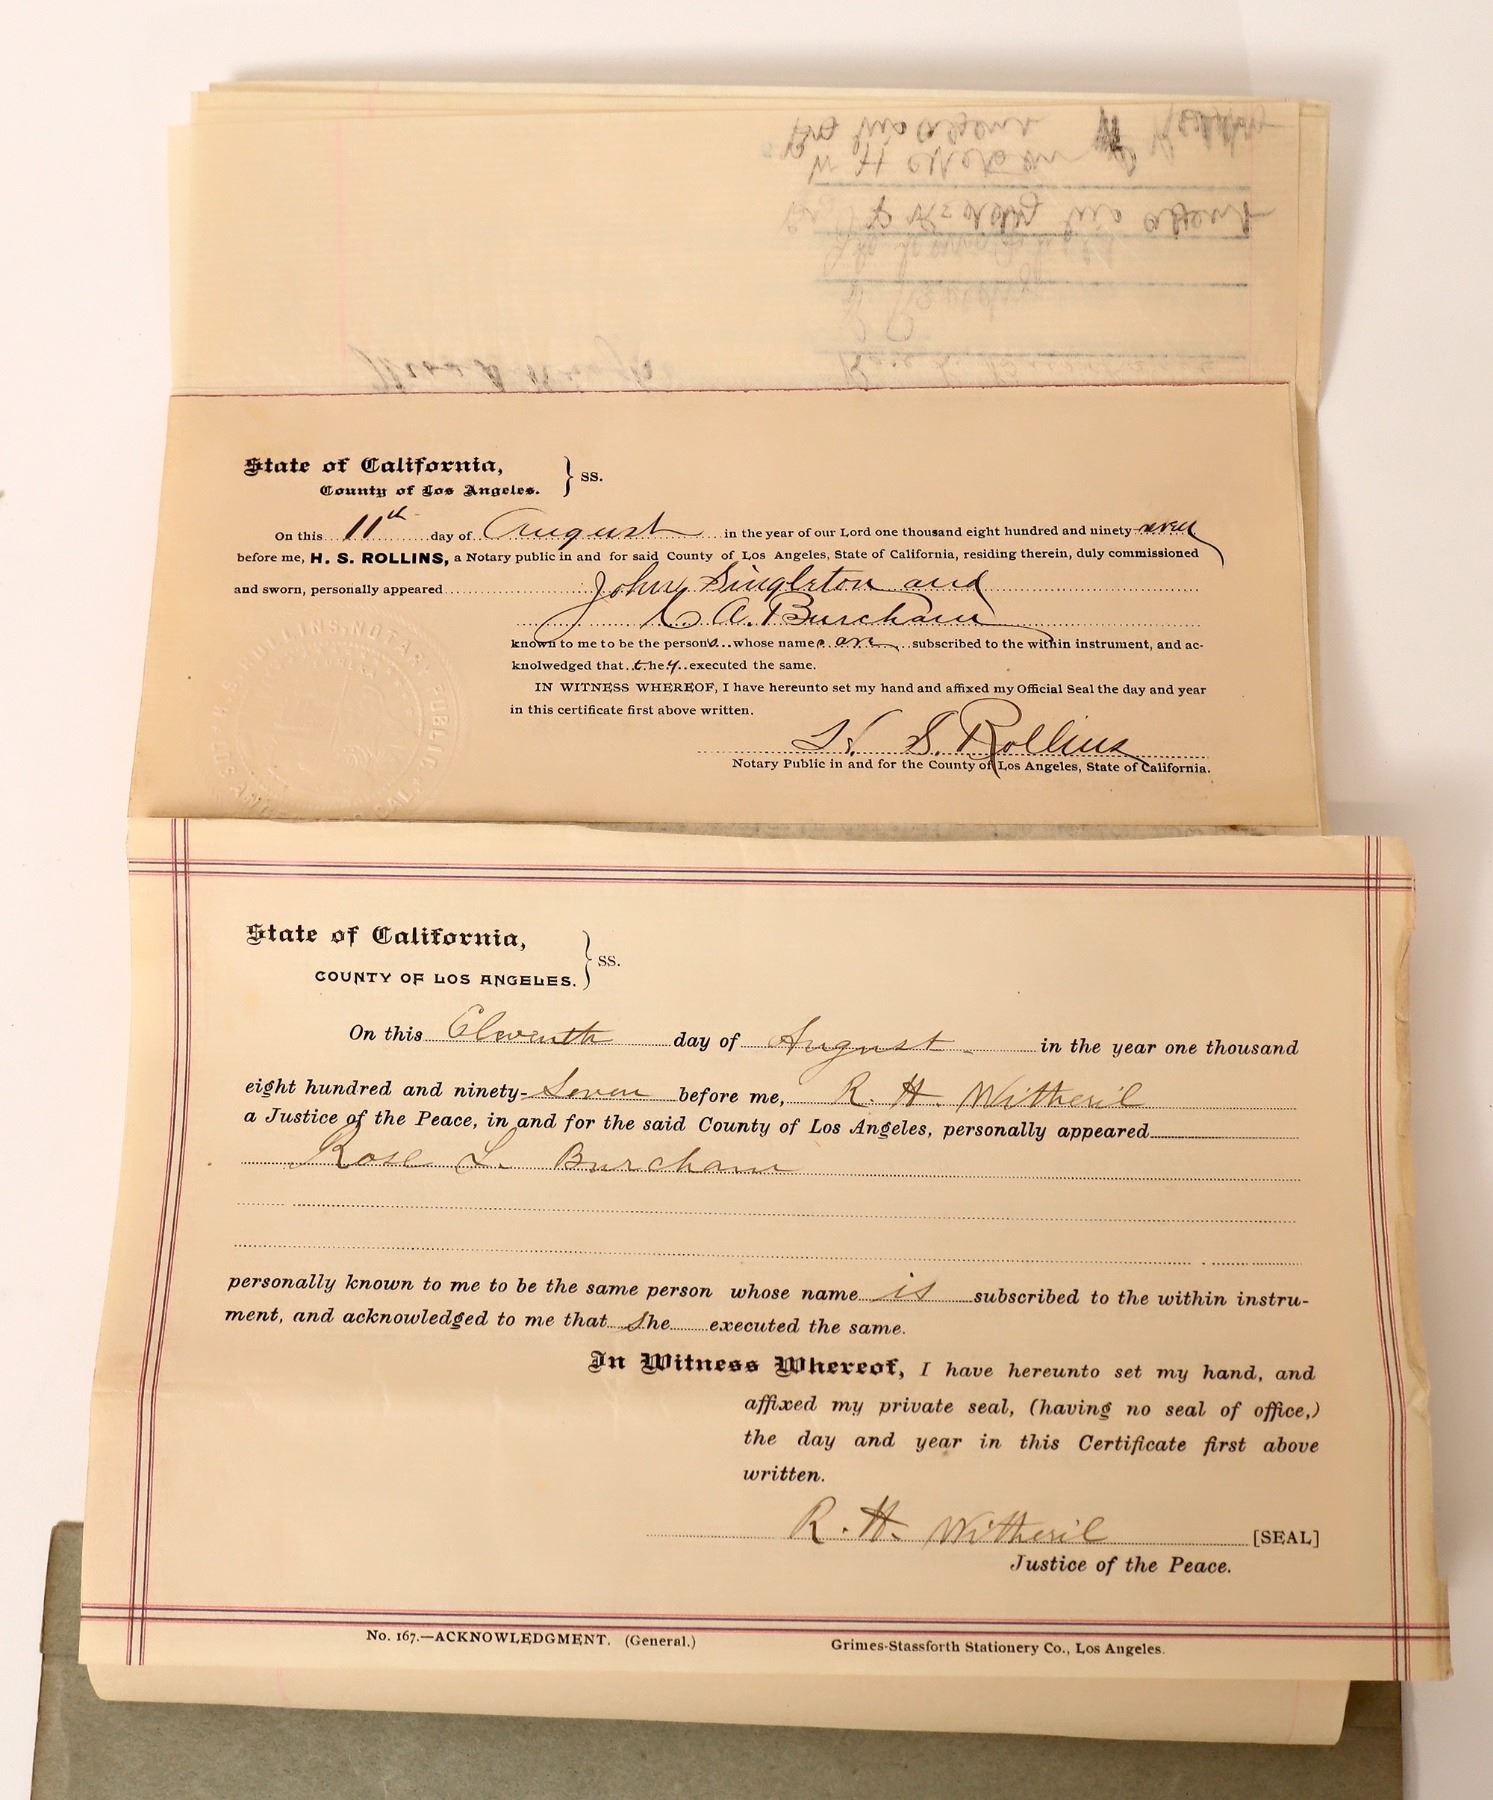 State of California,
County of Los Angeles. } ss.
On this 11th day of August in the year of our Lord one thousand eight hundred and ninety seven
before me, H. S. ROLLINS, a Notary public in and for said County of Los Angeles, State of California, residing therein, duly commissioned
and sworn, personally appeared John Singleton and
C. A. Burcham
known to me to be the persons whose names are subscribed to the within instrument, and ac-
knolwedged that they executed the same.
IN WITNESS WHEREOF, I have hereunto set my hand and affixed my Official Seal the day and year
in this certificate first above written.
H. S. Rollins
Notary Public in and for the County of Los Angeles, State of California.
H. S. ROLLINS, NOTARY PUBLIC
State of California,
COUNTY OF LOS ANGELES. } ss.
On this Eleventh day of August in the year one thousand
eight hundred and ninety-Seven before me, R. H. Witheril
a Justice of the Peace, in and for the said County of Los Angeles, personally appeared
Rose L. Burcham
personally known to me to be the same person whose name is subscribed to the within instru-
ment, and acknowledged to me that She executed the same.
In Witness Whereof, I have hereunto set my hand, and
affixed my private seal, (having no seal of office,)
the day and year in this Certificate first above
written.
R. H. Witheril [SEAL]
Justice of the Peace.
No. 167.—ACKNOWLEDGMENT. (General.) Grimes-Stassforth Stationery Co., Los Angeles.